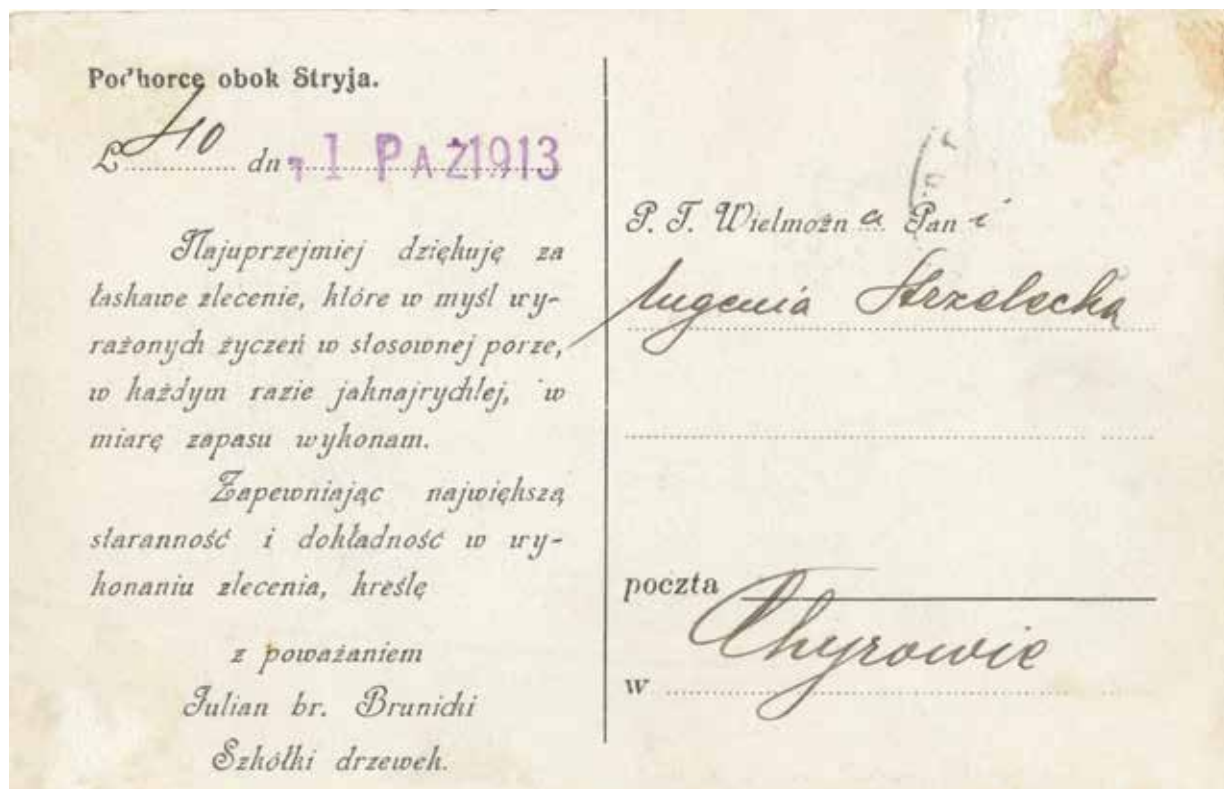 Podhorce obok Stryja.
L 410 dn - 1 PAŹ 1913
Najuprzejmiej dziękuję za
łaskawe zlecenie, które w myśl wy-
rażonych życzeń w stosownej porze,
w każdym razie jaknajrychlej, w
miarę zapasu wykonam.
Zapewniając największą
staranność i dokładność w wy-
konaniu zlecenia, kreślę
z poważaniem
Julian br. Brunicki
Szkółki drzewek.
P. T. Wielmożna Pani
Eugenia Strzelecka
poczta
w Chyrowie